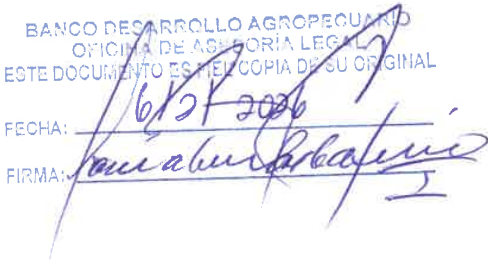 BANCO DESARROLLO AGROPECUARIO
OFICINA DE ASESORÍA LEGAL
ESTE DOCUMENTO ES FIEL COPIA DE SU ORIGINAL
FECHA: 6/2/2026
FIRMA: